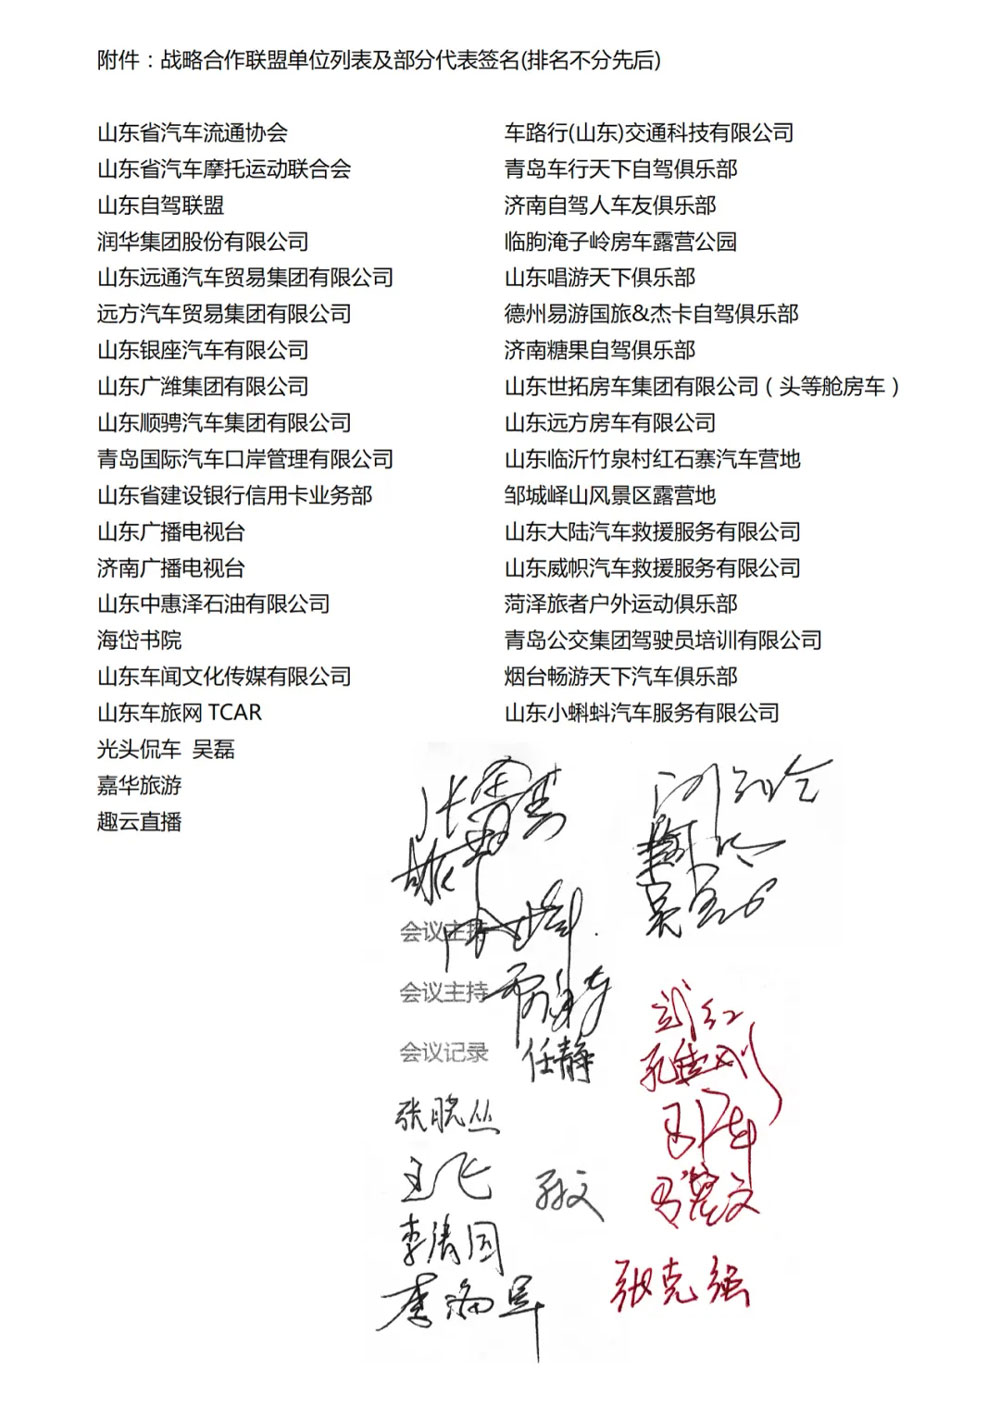 附件：战略合作联盟单位列表及部分代表签名(排名不分先后)
山东省汽车流通协会
山东省汽车摩托运动联合会
山东自驾联盟
润华集团股份有限公司
山东远通汽车贸易集团有限公司
远方汽车贸易集团有限公司
山东银座汽车有限公司
山东广潍集团有限公司
山东顺骋汽车集团有限公司
青岛国际汽车口岸管理有限公司
山东省建设银行信用卡业务部
山东广播电视台
济南广播电视台
山东中惠泽石油有限公司
海岱书院
山东车闻文化传媒有限公司
山东车旅网 TCAR
光头侃车 吴磊
嘉华旅游
趣云直播
车路行(山东)交通科技有限公司
青岛车行天下自驾俱乐部
济南自驾人车友俱乐部
临朐淹子岭房车露营公园
山东唱游天下俱乐部
德州易游国旅&杰卡自驾俱乐部
济南糖果自驾俱乐部
山东世拓房车集团有限公司（头等舱房车）
山东远方房车有限公司
山东临沂竹泉村红石寨汽车营地
邹城峄山风景区露营地
山东大陆汽车救援服务有限公司
山东威帜汽车救援服务有限公司
菏泽旅者户外运动俱乐部
青岛公交集团驾驶员培训有限公司
烟台畅游天下汽车俱乐部
山东小蝌蚪汽车服务有限公司
会议主持
会议主持
会议记录
任静
张晓丛
王飞
李海军
张克强